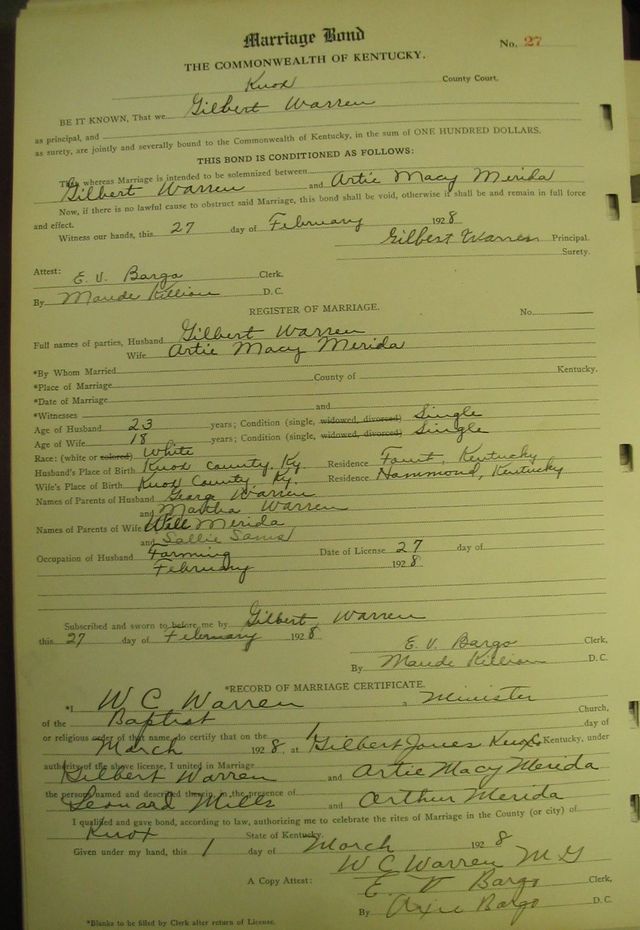 Marriage Bond
No. 27
THE COMMONWEALTH OF KENTUCKY.
Knox County Court.
BE IT KNOWN, That we Gilbert Warren
as principal, and
as surety, are jointly and severally bound to the Commonwealth of Kentucky, in the sum of ONE HUNDRED DOLLARS.
THIS BOND IS CONDITIONED AS FOLLOWS:
That whereas Marriage is intended to be solemnized between
Gilbert Warren and Artie Macy Merida
Now, if there is no lawful cause to obstruct said Marriage, this bond shall be void, otherwise it shall be and remain in full force
and effect.
Witness our hands, this 27 day of February 1928
Gilbert Warren Principal.
Surety.
Attest: E. V. Bargo Clerk,
By Maude Killion D.C.
REGISTER OF MARRIAGE.
No.
Full names of parties, Husband Gilbert Warren
Wife Artie Macy Merida
*By Whom Married
*Place of Marriage County of Kentucky.
*Date of Marriage
*Witnesses and
Age of Husband 23 years; Condition (single, widowed, divorced) Single
Age of Wife 18 years; Condition (single, widowed, divorced) Single
Race: (white or colored) White
Husband's Place of Birth Knox County, Ky. Residence Kentucky
Wife's Place of Birth Knox County, Ky. Residence Hammond, Kentucky
Names of Parents of Husband George Warren
and Martha Warren
Names of Parents of Wife Will Merida
and Sallie Sams
Occupation of Husband Farming Date of License 27 day of
February 1928
Subscribed and sworn to before me by Gilbert Warren
this 27 day of February 1928
E. V. Bargo Clerk,
By Maude Killion D.C.
*RECORD OF MARRIAGE CERTIFICATE.
*I W C Warren a Minister
of the Baptist Church,
or religious order of that name, do certify that on the 1 day of
March 1928, at Gilbert Jones Knox Co Kentucky, under
authority of the above license, I united in Marriage
Gilbert Warren and Artie Macy Merida
the persons named and described therein, in the presence of
Leonard Mills and Arthur Merida
I qualified and gave bond, according to law, authorizing me to celebrate the rites of Marriage in the County (or city) of
Knox State of Kentucky.
Given under my hand, this 1 day of March 1928
W C Warren M G
A Copy Attest: E. V Bargo Clerk,
By Bargo D.C.
*Blanks to be filled by Clerk after return of License.